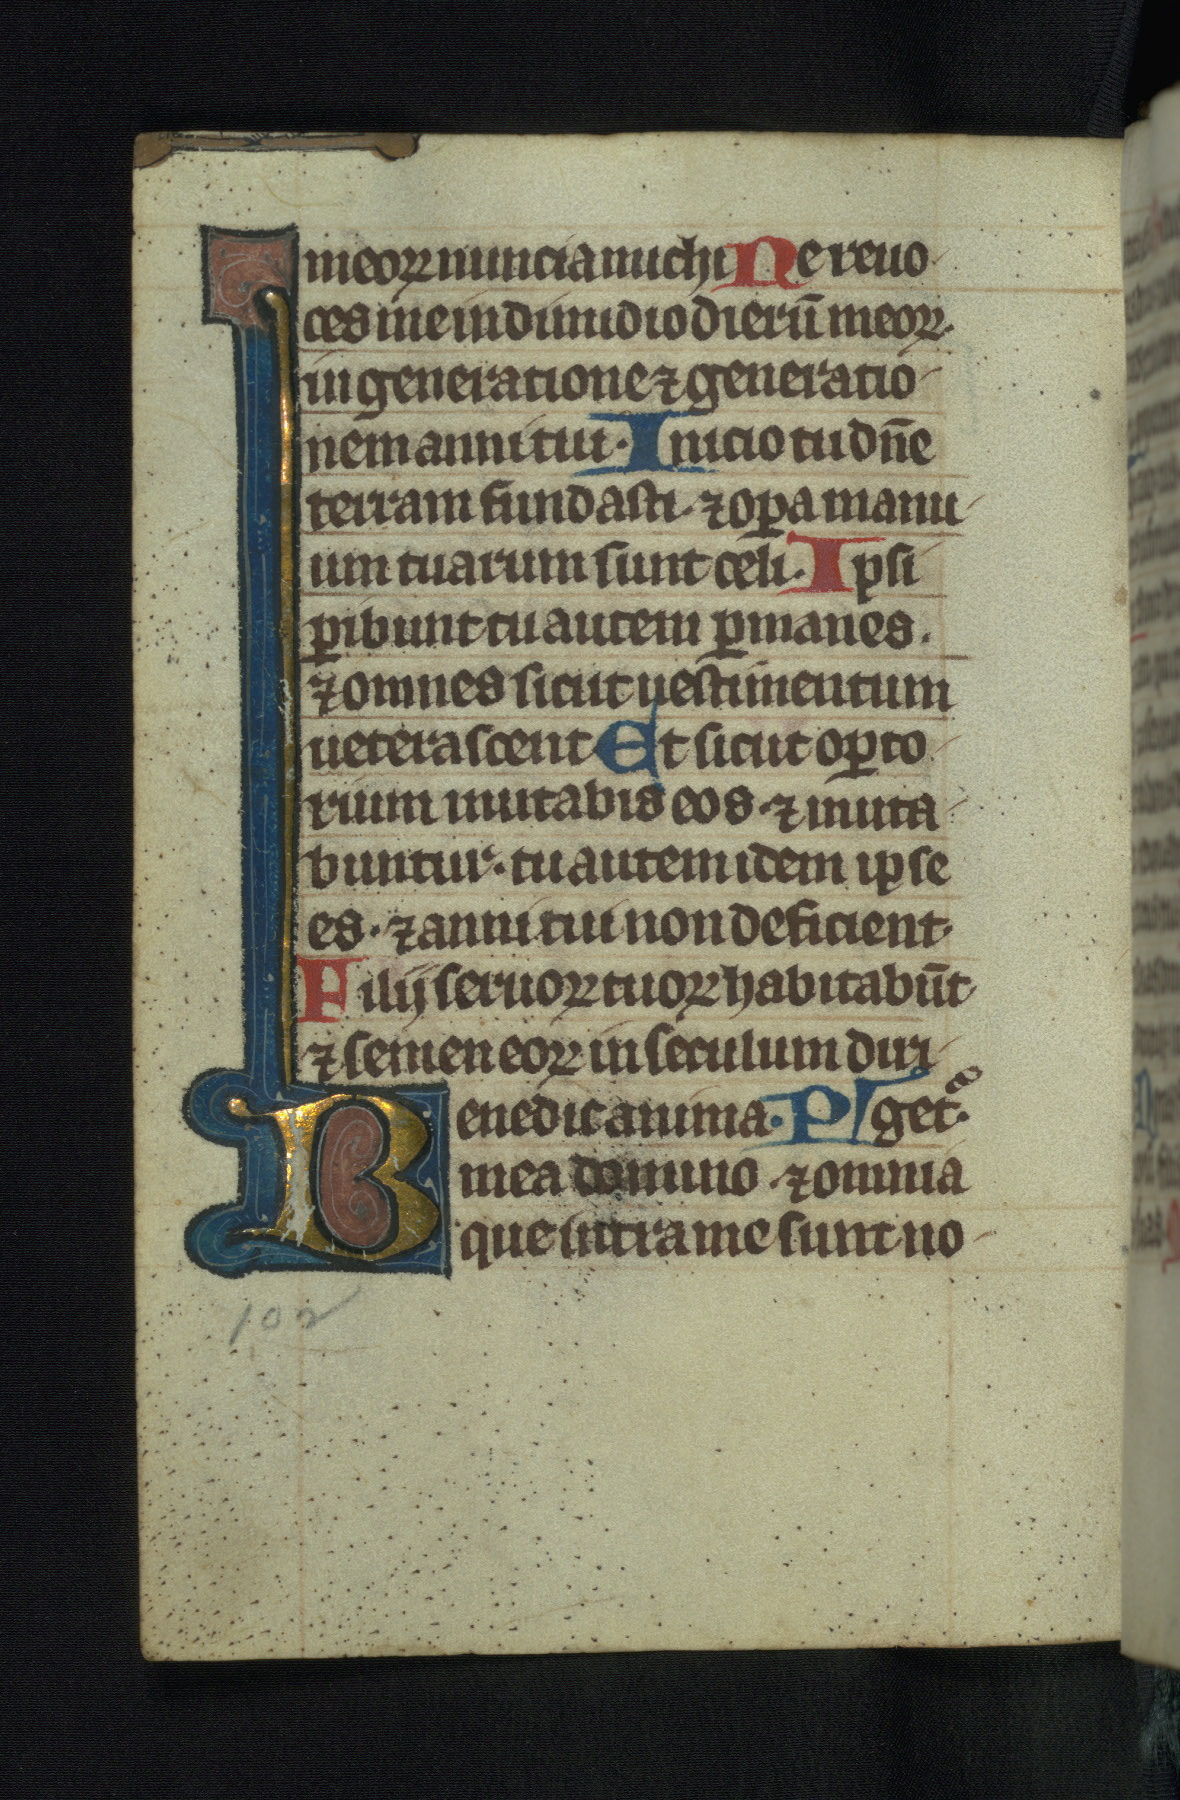 meoꝝ nuncia michi Ne reuo
ces me in dimidio dierū meoꝝ.
in generatione ⁊ generatio
nem anni tui. Inicio tu dn̄e
terram fundasti. ⁊ oꝑa manu
um tuarum sunt celi. Ipsi
ꝑibunt tu autem ꝑmanes.
⁊ omnes sicut uestimentum
ueterascent Et sicut oꝑto
rium mutabis eos. ⁊ muta
buntur. tu autem idem ipse
es. ⁊ anni tui non deficient.
Filij seruoꝝ tuoꝝ habitabūt
⁊ semen eoꝝ in seculum diri
Benedic anima. Ps getͣ.
mea domino. ⁊ omnia
que intra me sunt no
102